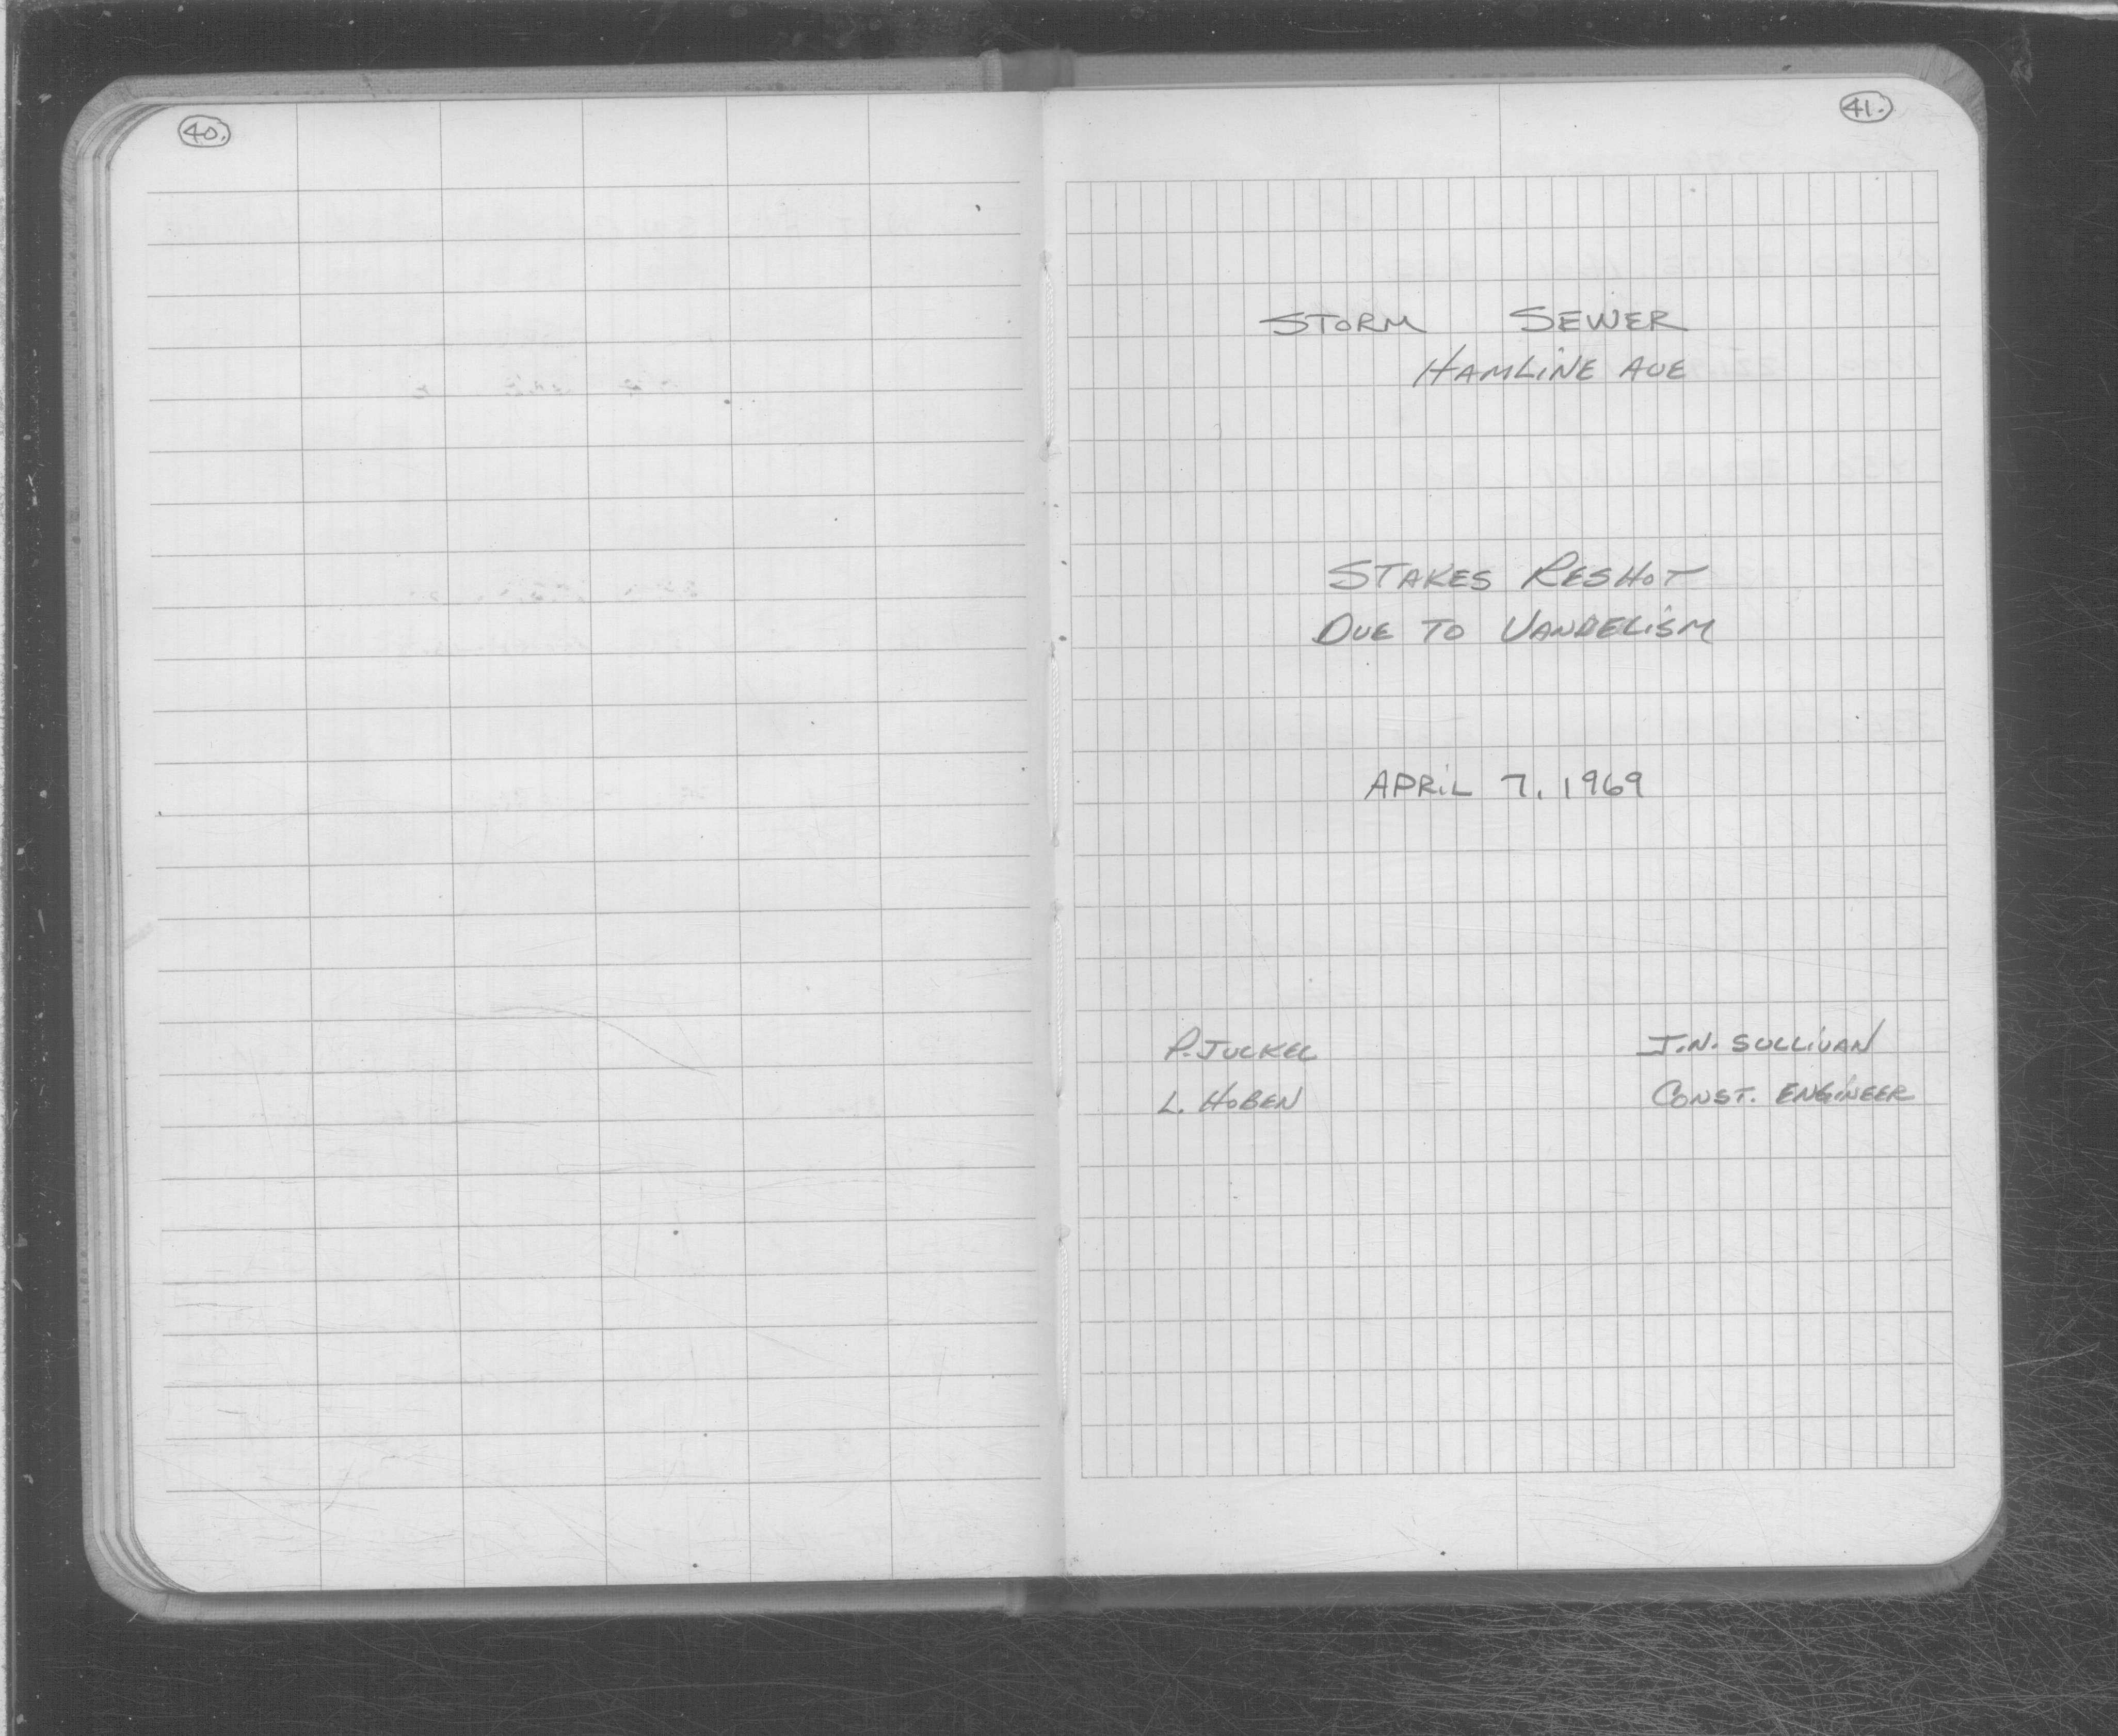 40.
41.
STORM SEWER
HAMLINE AVE
STAKES RESHOT
DUE TO VANDELISM
APRIL 7, 1969
P. JUCKEL J.N. SULLIVAN
L. HOBEN CONST. ENGINEER